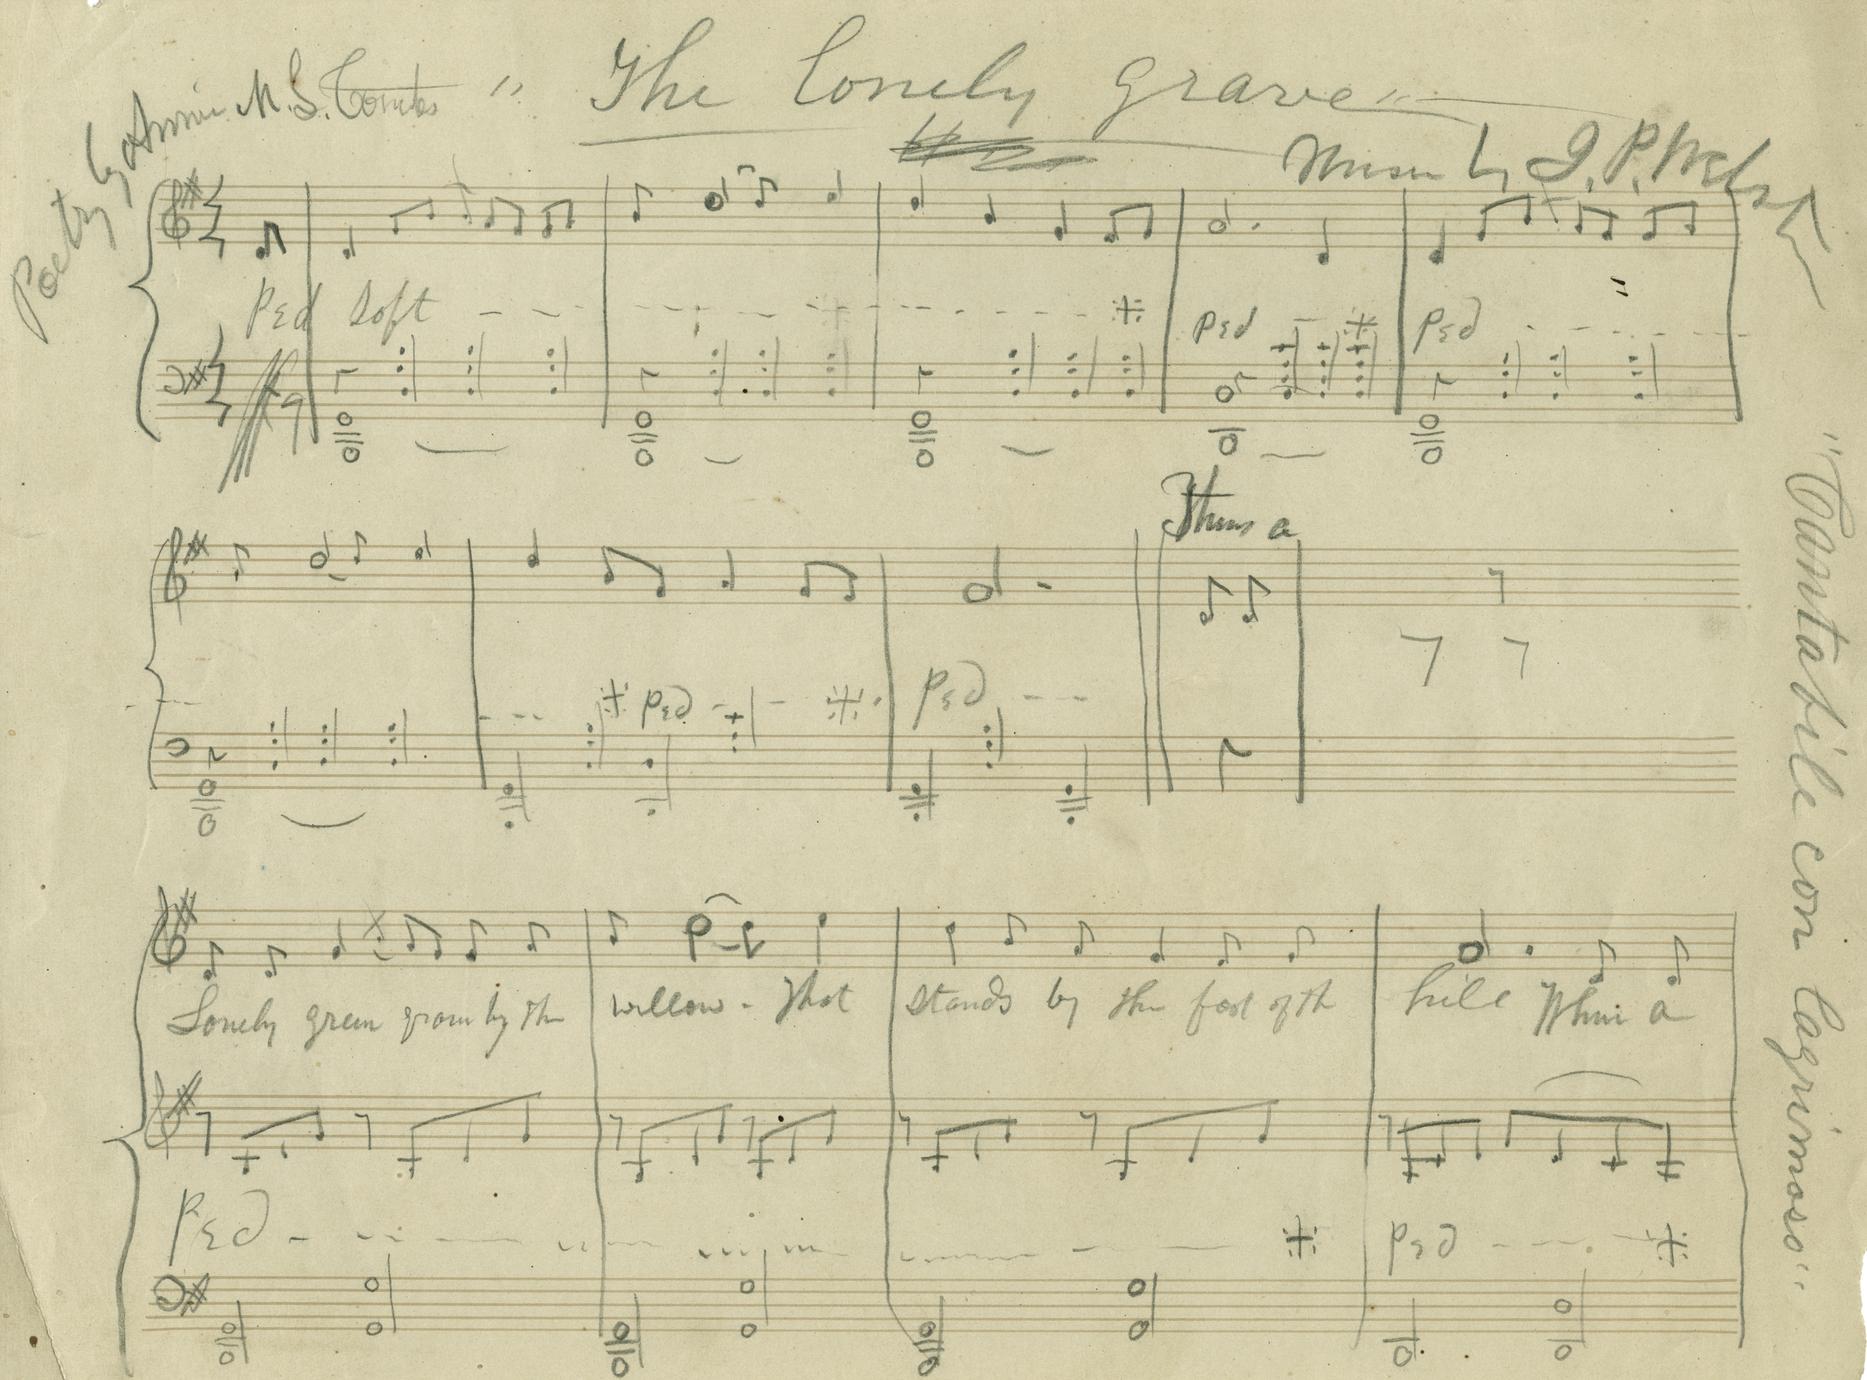 " The Lonely Grave "
Poetry by Annie M. S. Combs
Music by J. P. Webster
Ped Soft
Ped
Ped
a
Ped
Ped
Lonely green grave by the willow - That stands by the foot of th hill Thurs a
Ped
Ped
"Cantabile con lagrimoso"